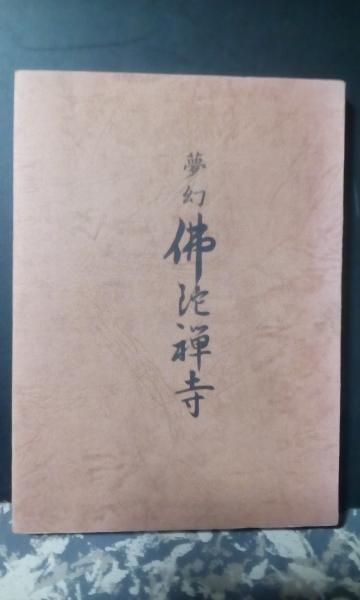 夢幻
佛陀禅寺